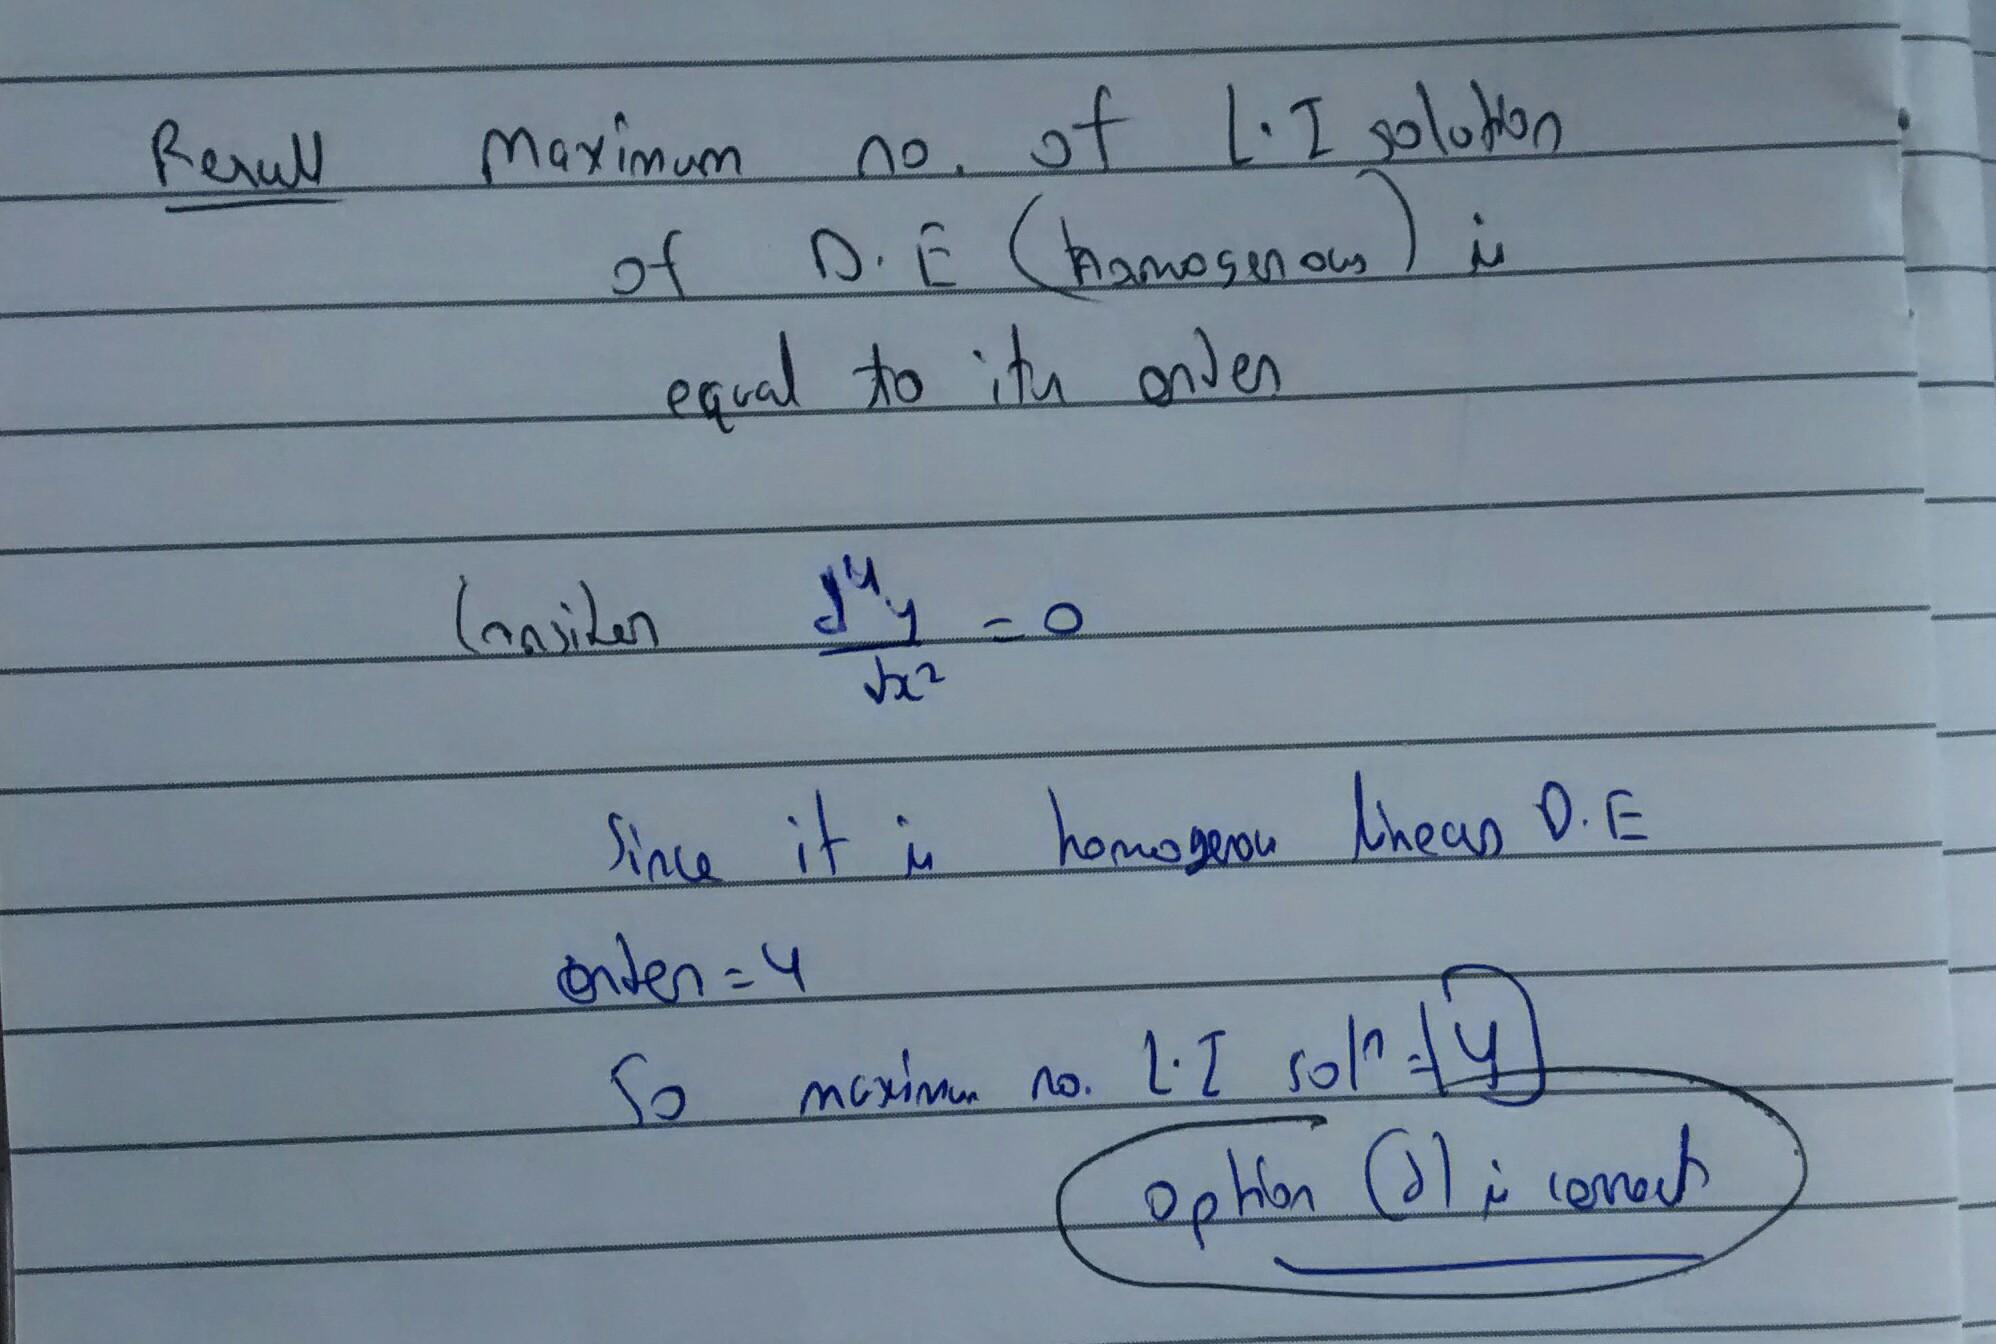 Result Maximum no. of L.I solution
of D.E (homogenous) is
equal to its order
Consider d⁴y/dx² = 0
Since it is homogenous linear D.E
order = 4
So maximum no. L.I solⁿ = 4
option (d) is correct